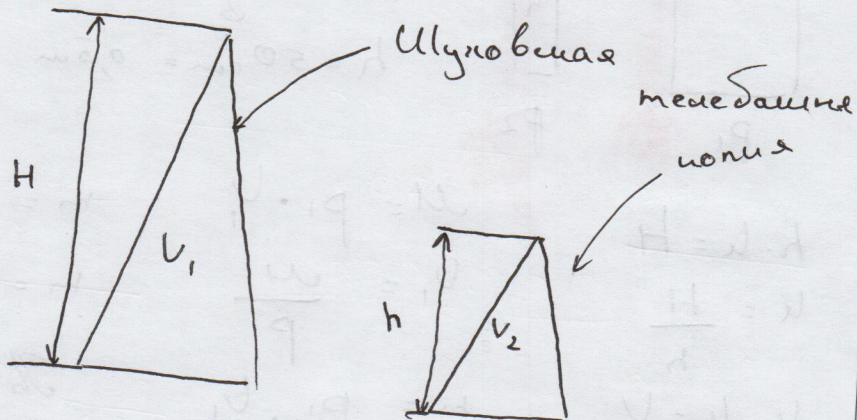 Шуховская
телебашня
копия
H
V₁
h
V₂